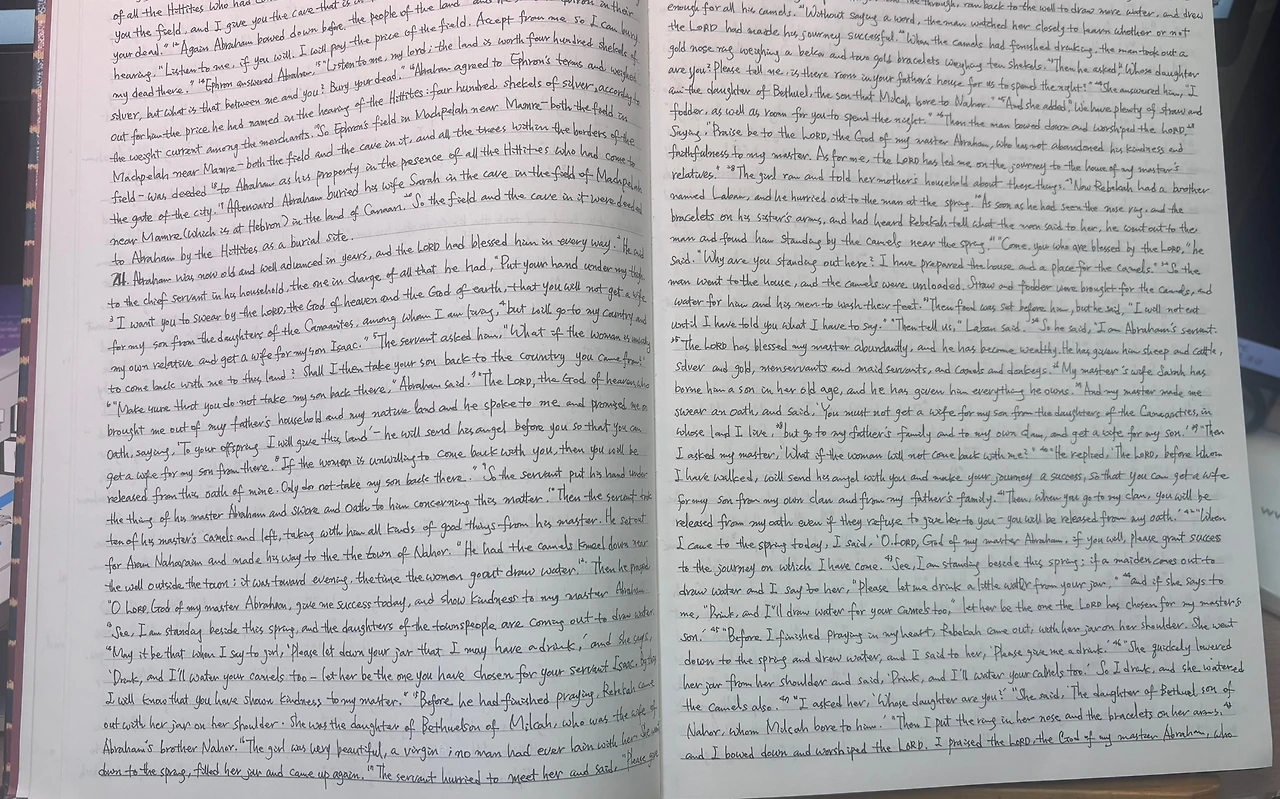 of all the Hittites who had co
you the field, and I give you the cave that is in
your dead." ¹² Again Abraham bowed down before the people of the land
hearing. "Listen to me, if you will. I will pay the price of the field. Accept from me so I can bury
my dead there." ¹⁴ Ephron answered Abraham, ¹⁵ "Listen to me, my lord; the land is worth four hundred shekels of
silver, but what is that between me and you? Bury your dead." ¹⁶ Abraham agreed to Ephron's terms and weighed
out for him the price he had named in the hearing of the Hittites: four hundred shekels of silver, according to
the weight current among the merchants. ¹⁷ So Ephron's field in Machpelah near Mamre - both the field in
Machpelah near Mamre - both the field and the cave in it, and all the trees within the borders of the
field - was deeded ¹⁸ to Abraham as his property in the presence of all the Hittites who had come to
the gate of the city. ¹⁹ Afterward Abraham buried his wife Sarah in the cave in the field of Machpelah
near Mamre (which is at Hebron) in the land of Canaan. ²⁰ So the field and the cave in it were deeded
to Abraham by the Hittites as a burial site.
24 Abraham was now old and well advanced in years, and the LORD had blessed him in every way. ² He said
to the chief servant in his household, the one in charge of all that he had, "Put your hand under my thigh.
³ I want you to swear by the LORD, the God of heaven and the God of earth, that you will not get a wife
for my son from the daughters of the Canaanites, among whom I am living, ⁴ but will go to my country and
my own relative and get a wife for my son Isaac." ⁵ The servant asked him, "What if the woman is unwilling
to come back with me to this land? Shall I then take your son back to the country you came from?"
⁶ "Make sure that you do not take my son back there," Abraham said. ⁷ "The LORD, the God of heaven, who
brought me out of my father's household and my native land and he spoke to me and promised me on
oath, saying, 'To your offspring I will give this land' - he will send his angel before you so that you can
get a wife for my son from there. ⁸ If the woman is unwilling to come back with you, then you will be
released from this oath of mine. Only do not take my son back there." ⁹ So the servant put his hand under
the thing of his master Abraham and swore and oath to him concerning this matter. ¹⁰ Then the servant took
ten of his master's camels and left, taking with him all kinds of good things from his master. He set out
for Aram Naharaim and made his way to the the town of Nahor. ¹¹ He had the camels kneel down near
the well outside the town; it was toward evening, the time the women go out draw water. ¹² Then he prayed
"O LORD, God of my master Abraham, give me success today, and show kindness to my master Abraham.
¹³ See, I am standay beside this spring, and the daughters of the townspeople are coming out to draw water.
¹⁴ May it be that when I say to girl, 'Please let down your jar that I may have a drink,' and she says,
'Drink, and I'll water your camels too - let her be the one you have chosen for your servant Isaac. By this
I will know that you have shown kindness to my master." ¹⁵ Before he had finished praying, Rebekah came
out with her jar on her shoulder. She was the daughter of Bethuelson of Milcah, who was the wife of
Abraham's brother Nahor. ¹⁶ The girl was very beautiful, a virgin; no man had ever lain with her. She went
down to the spring, filled her jar and came up again. ¹⁷ The servant hurried to meet her and said, "Please give
ran back to the well to draw more water, and drew
enough for all his camels. ²¹ Without saying a word, the man watched her closely to learn whether or not
the LORD had made his journey successful. ²² When the camels had finished drinking, the man took out a
gold nose rag weighing a beka and two gold bracelets weighing ten shekels. ²³ Then he asked, "Whose daughter
are you? Please tell me, is there room in your father's house for us to spend the night?" ²⁴ She answered him, "I
am the daughter of Bethuel, the son that Milcah bore to Nahor." ²⁵ And she added, "We have plenty of straw and
fodder, as well as room for you to spend the night." ²⁶ Then the man bowed down and worshiped the LORD, ²⁷
Saying, "Praise be to the LORD, the God of my master Abraham, who has not abandoned his kindness and
faithfulness to my master. As for me, the LORD has led me on the journey to the house of my master's
relatives." ²⁸ The girl ran and told her mother's household about these things. ²⁹ Now Rebekah had a brother
named Laban, and he hurried out to the man at the spring. ³⁰ As soon as he had seen the nose rag, and the
bracelets on his sister's arms, and had heard Rebekah tell what the man said to her, he went out to the
man and found him standing by the camels near the sprag. ³¹ "Come, you who are blessed by the LORD," he
said. "Why are you standing out here? I have prepared the house and a place for the camels." ³² So the
man went to the house, and the camels were unloaded. Straw and fodder were brought for the camels, and
water for him and his men to wash their feet. ³³ Then food was set before him, but he said, "I will not eat
until I have told you what I have to say." "Then tell us," Laban said. ³⁴ So he said, "I am Abraham's servant.
³⁵ The LORD has blessed my master abundantly, and he has become wealthy. He has given him sheep and cattle,
silver and gold, menservants and maid servants, and camels and donkeys. ³⁶ My master's wife Sarah has
borne him a son in her old age, and he has given him everything he owns. ³⁷ And my master made me
swear an oath, and said, 'You must not get a wife for my son from the daughters of the Canaanties, in
whose land I love, ³⁸ but go to my father's family and to my own clan, and get a wife for my son.' ³⁹ "Then
I asked my master, 'What if the woman will not come back with me?' ⁴⁰ "He replied, 'The LORD, before whom
I have walked, will send his angel with you and make your journey a success, so that you can get a wife
for my son from my own clan and from my father's family. ⁴¹ Then, when you go to my clan, you will be
released from my oath even if they refuse to give her to you - you will be released from my oath.' ⁴² "When
I came to the spring today, I said, 'O LORD, God of my master Abraham, if you will, please grant succes
to the journey on which I have come. ⁴³ See, I am standing beside this spring; if a maiden comes out to
draw water and I say to her, "Please let me drink a little water from your jar," ⁴⁴ and if she says to
me, "Drink, and I'll draw water for your camels too," let her be the one the LORD has chosen for my master's
son.' ⁴⁵ "Before I finished praying in my heart, Rebekah came out, with her jar on her shoulder. She went
down to the spring and drew water, and I said to her, 'Please give me a drink.' ⁴⁶ "She quickly lowered
her jar from her shoulder and said, 'Drink, and I'll water your camels too.' So I drank, and she watered
the camels also. ⁴⁷ "I asked her, 'Whose daughter are you?' "She said, 'The daughter of Bethuel son of
Nahor, whom Milcah bore to him.' "Then I put the ring in her nose and the bracelets on her arms, ⁴⁸
and I bowed down and worshiped the LORD. I praised the LORD, the God of my master Abraham, who